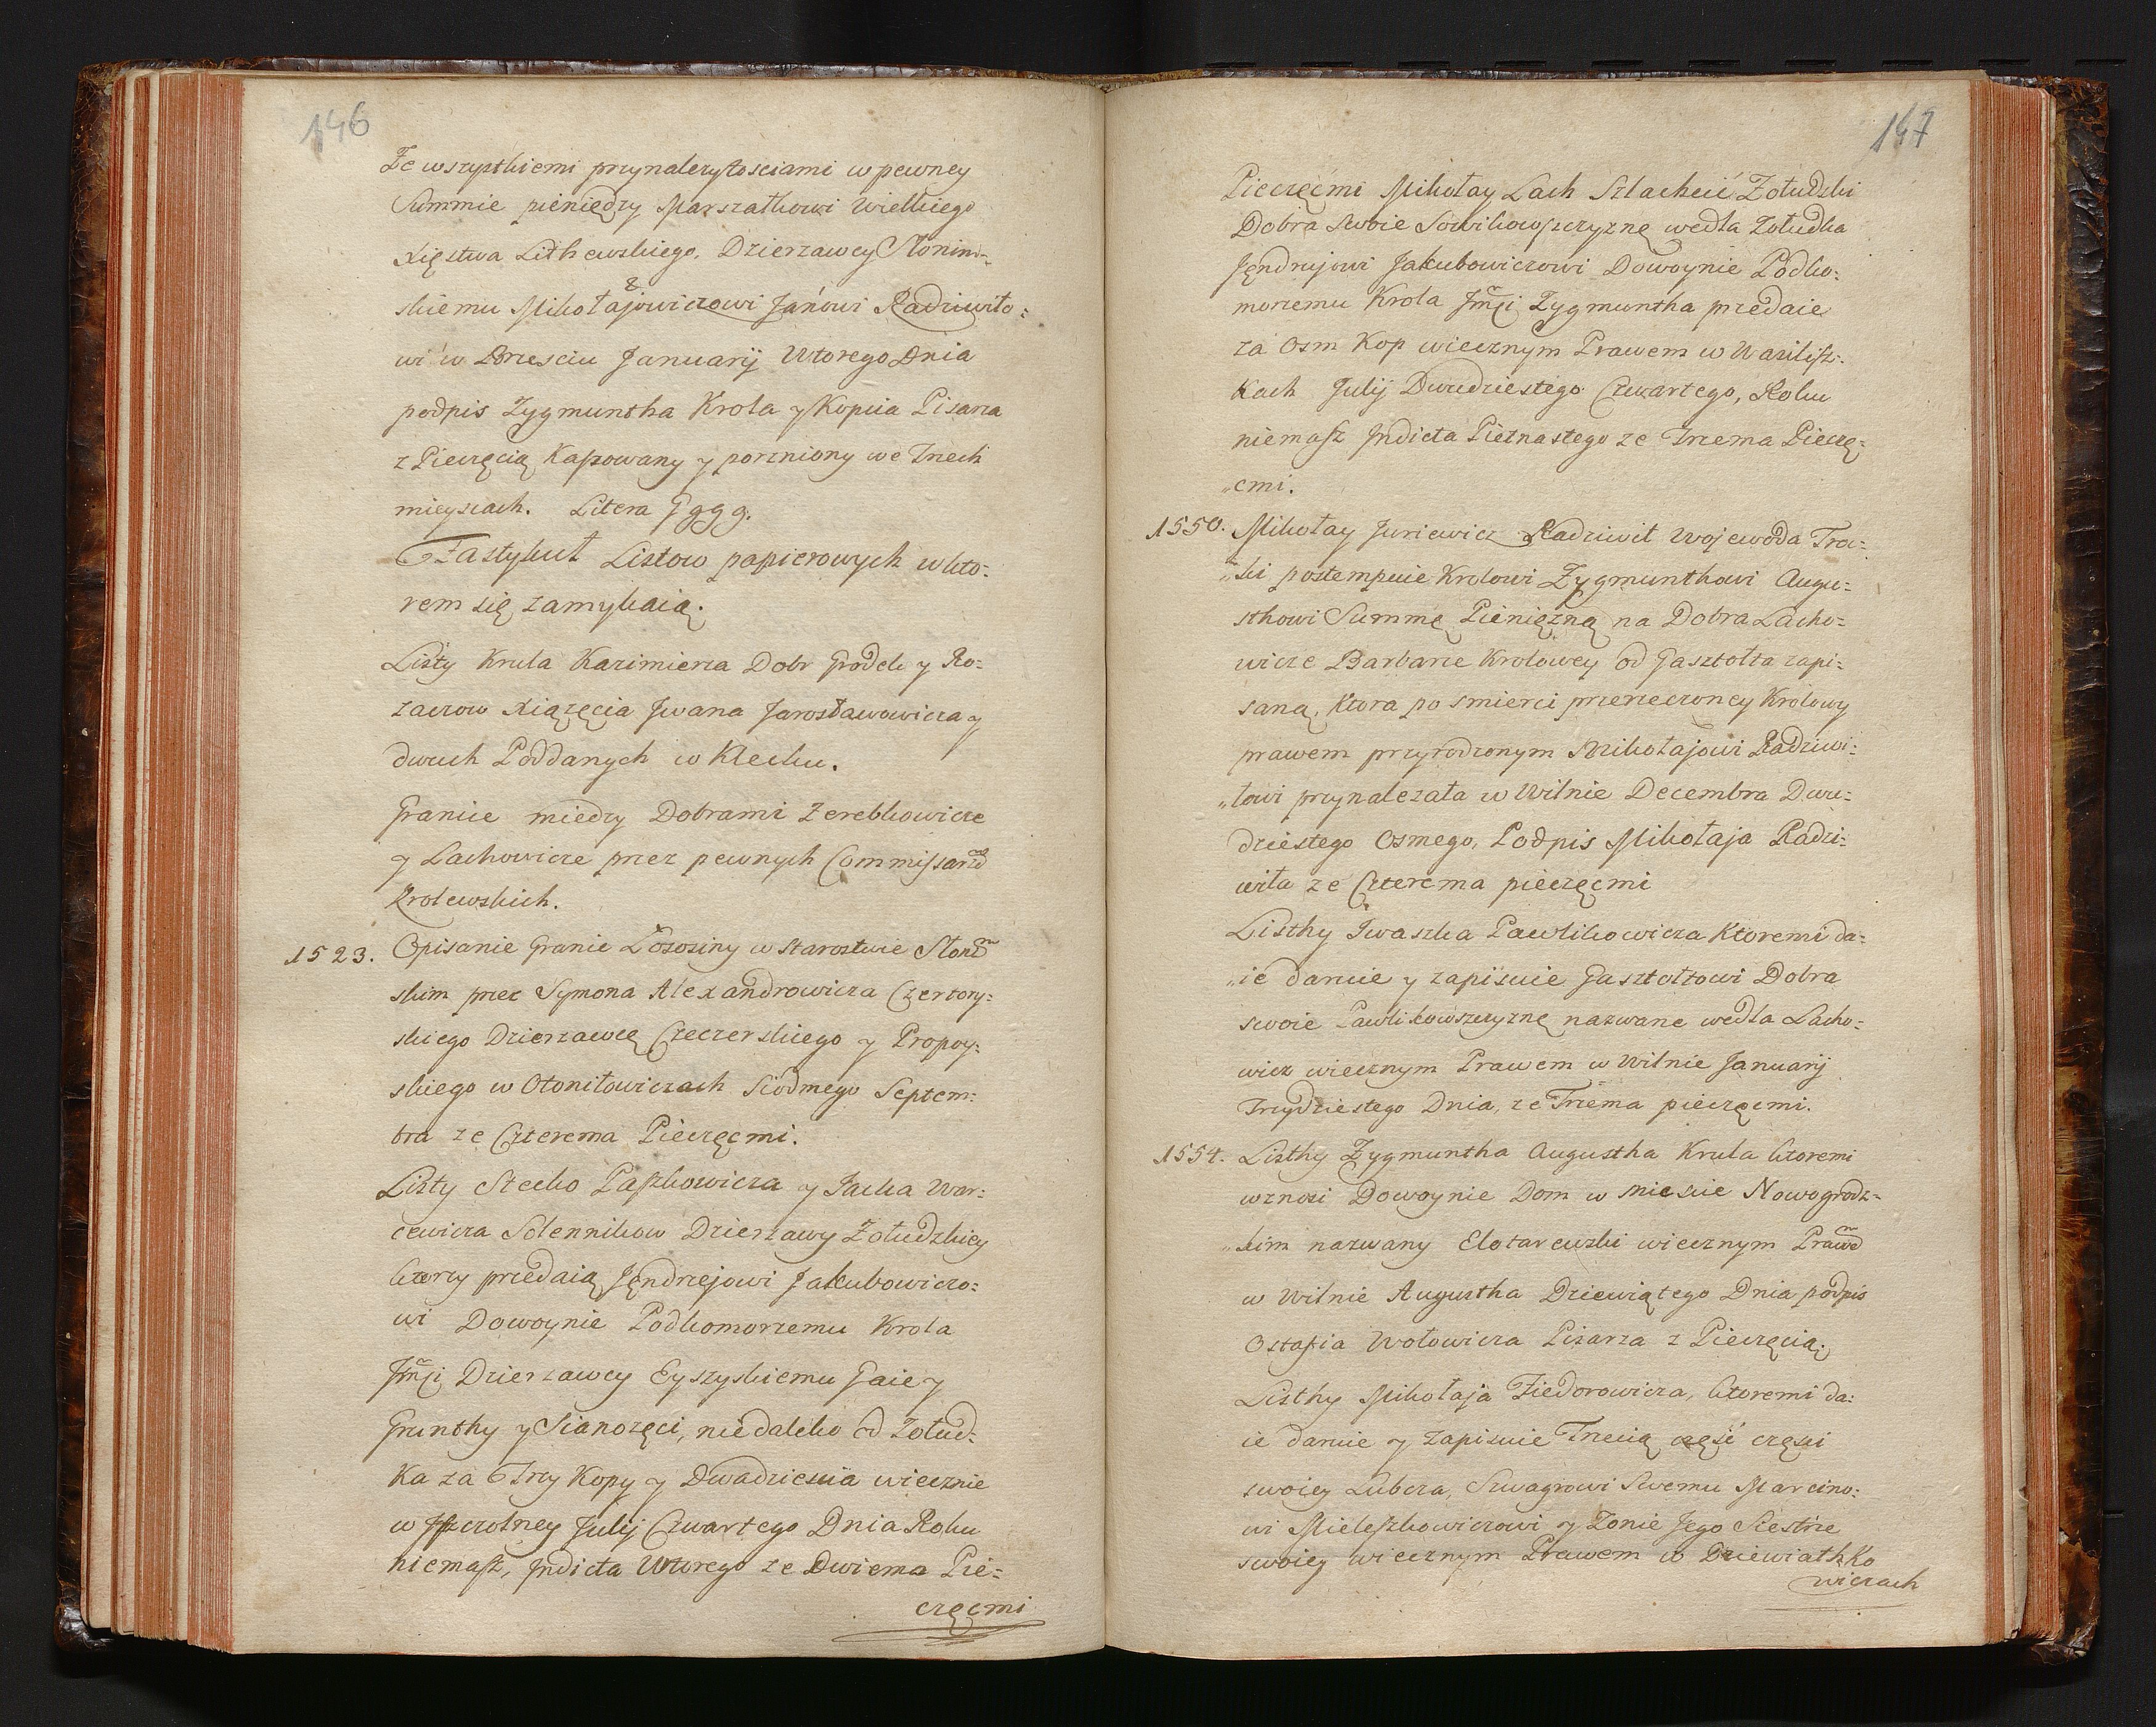 146
Ze wszystkiemi przynalezytosciami w pewney
Summie pieniędzy Marszałkowi Wielkiego
Xięstwa Lithewskiego, Dzierzawcy Słonim-
skiemu Mikołajowiczowi Janowi Radziwiło:
wi w Brzesciu Januarij Wtorego Dnia
podpis Zygmuntha Krola y Kopcia Pisarza
z Pieczęcią Kasowany y porzniony we Trzech
mieyscach. Litera Gggg.
Fastykuł Listow papierowych w kto:
rem się zamykaią.
Listy Krula Kazimierza Dobr Grodek y Ro:
zaczow Xiązęcia Jwana Jarosławowicza y
dwuch Poddanych w Klecku.
Granice miedzy Dobrami Zereblkowicze
y Lachowicze przez pewnych Commissarzow
Krolewskich.
1523. Opisanie Granic Łososiny w Starostwie Słonim
skim przez Symona Alexandrowicza Czertory:
skiego Dzierzawcę Czeczerskiego y Propoy:
skiego w Otoniłowiczach Siodmego Septem:
bra ze Czterema Pieczęcmi.
Listy Stecko Paszkowicza y Jacka War:
cewicza Solennikow Dzierzawy Zołudzkiey
ktorzy przedaią Jędrzejowi Jakubowiczo:
wi Dowoynie Podkomorzemu Krola
Jmci Dzierzawcy Eyszyskiemu Gaie y
Grunthy y Sianozęci, niedaleko od Zołud:
Ka za Trzy Kopy y Dwadziescia wiecznie
w Szczolney Julij Czwartego Dnia Roku
niemasz, Jndicta Wtorego ze Dwiema Pie:
częcmi
147
Pieczęcmi Mikołay Lach Szlachcić Zołudzki
Dobra swoie Sowikowszczyznę wedla Zoludka
Jędrujowi Jakubowiczowi Dowoynie Podko:
morzemu Krola Jmci Zygmuntha przedaie
za Osm Kop wiecznym Prawem w Wasilisz:
Kach Julij Dwudziestego Czwartego, Roku
niemasz Jndicta Pietnastego ze Trzema Pieczę:
„cmi.
1550. Mikołay Juriewicz Radziwił Wojewoda Troc:
„ki postempuie Krolowi Zygmunthowi Augu:
sthowi Summę Pieniężną na Dobra Lacho:
wicze Barbarze Krolowey od Gasztołta zapi:
saną, Ktora po smierci przerzeczoney Krolowy
prawem przyrodzonym Mikołajowi Radziwi:
„łowi przynalezała w Wilnie Decembra Dwu:
dziestego Osmego, Podpis Mikołaja Radzi:
wiła ze Czterema pieczęcmi
Listhy Jwaszka Pawlikowicza Ktoremi da:
„ie daruie y zapisuie Gasztołtowi Dobra
swoie Pawlikowszczyznę nazwane wedla Lacho:
wicz wiecznym Prawem w Wilnie Januarij
Trzydziestego Dnia, ze Trzema pieczęcmi.
1554. Listhy Zygmuntha Augustha Krula ktoremi
wznosi Dowoynie Dom w Miescie Nowogrodz:
„kim nazwany Elotarewski wiecznym Prawem
w Wilnie Augustha Dziewiątego Dnia podpis
Ostafia Wołowicza Pisarza z Pieczęcią.
Listhy Mikołaja Fiedorowicza, ktoremi da:
ie daruie y zapisuie Trzecią część częsci
swoiey Lubcza, Szwagrowi Swemu Marcino:
wi Mieleszkowiczowi y Zonie Jego Siestrze
swoiey wiecznym Prawem w Dziewiathko
wiczach